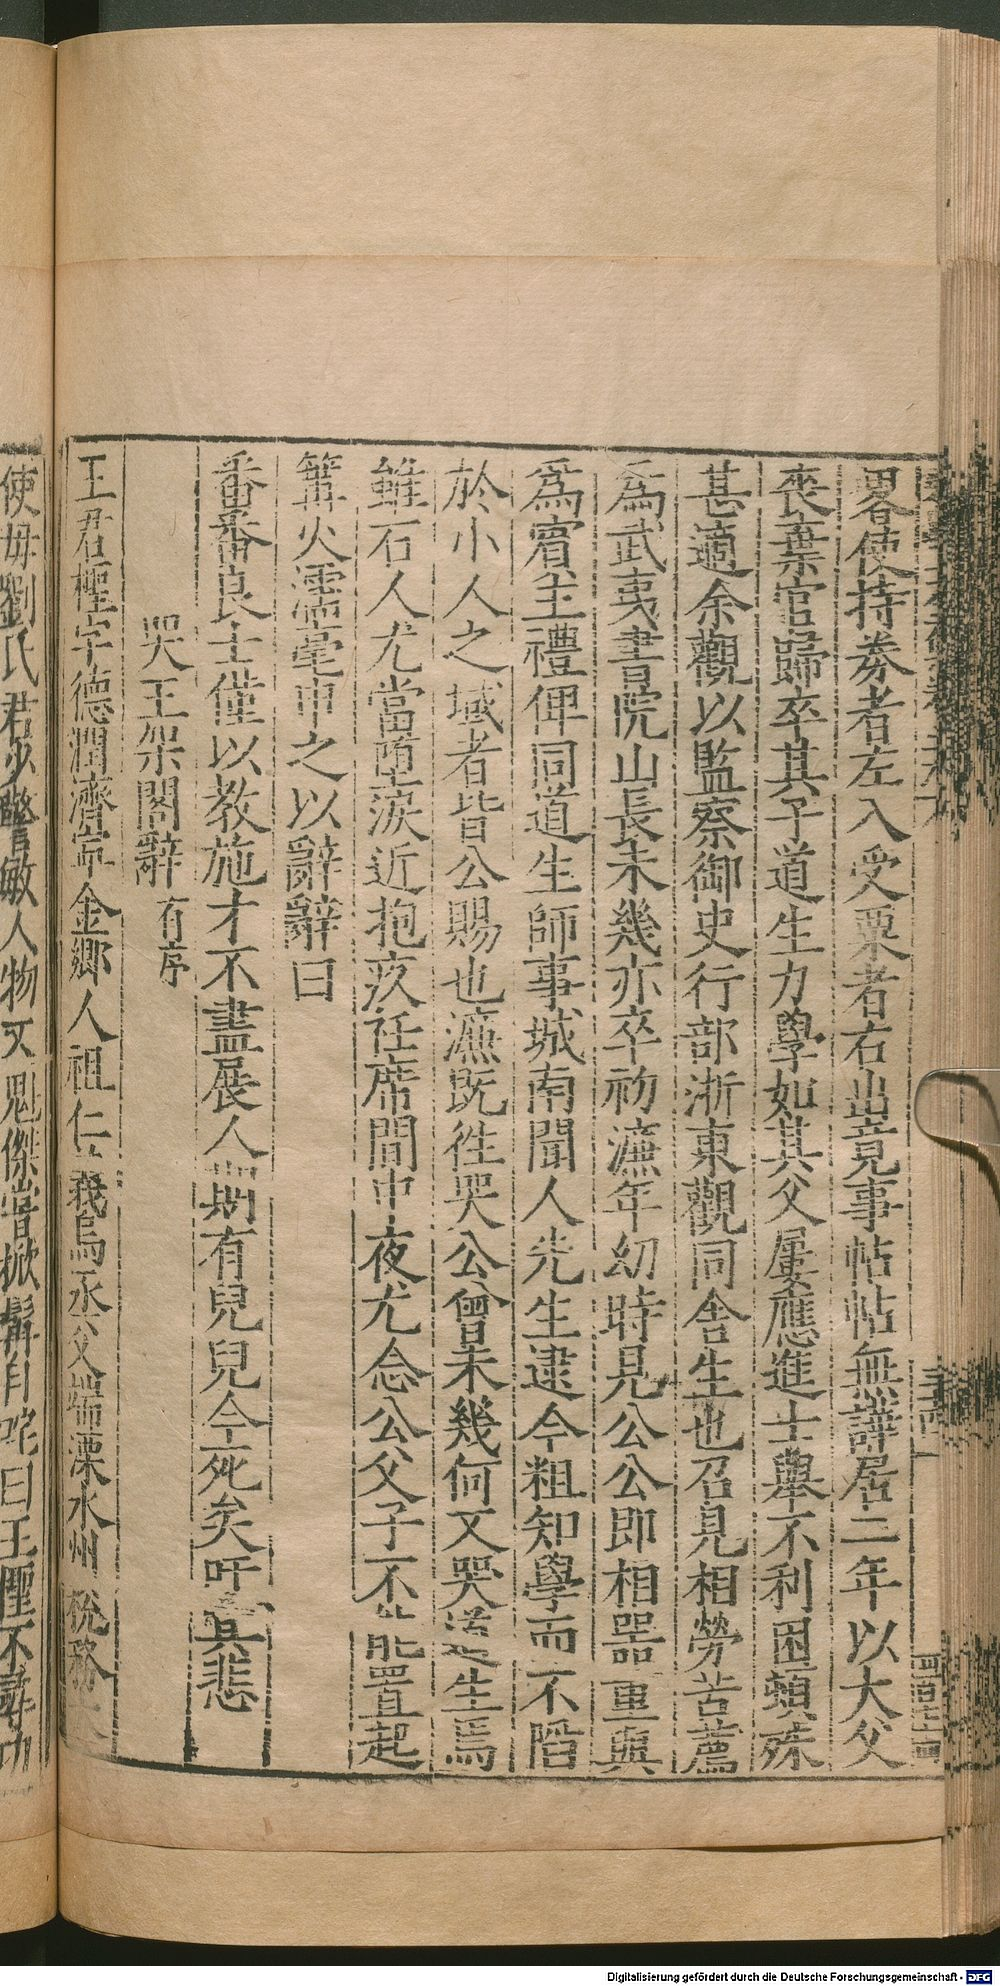 畧使持券者左入受粟者右出竟事帖帖無譁居二年以大父
喪棄官歸卒其子道生力學如其父屢應進士舉不利困頓殊
甚適余觀以監察御史行部浙東觀同舎生也召見相勞苦薦
爲武夷書院山長未幾亦卒初濂年幼時見公公即相器重與
爲賓主禮俾同道生師事城南聞人先生逮今粗知學而不陷
於小人之域者皆公賜也濂既徃哭公曾未幾何又哭道生焉
雖石人尤當墮淚近抱疚在席間中夜尤念公父子不能置起
篝火濡毫申之以辭辭曰
番番良士僅以教施才不盡展人期有兒兒今死矣吁其悲
哭王架閣辭 有序
王君檉字德潤濟寧金鄉人祖仁義烏丞父端溧水州稅務大
使母劉氏君少警敏人物又魁傑嘗掀髯自咤曰王檉不許功
三四
四百七十三
Digitalisierung gefördert durch die Deutsche Forschungsgemeinschaft - DFG